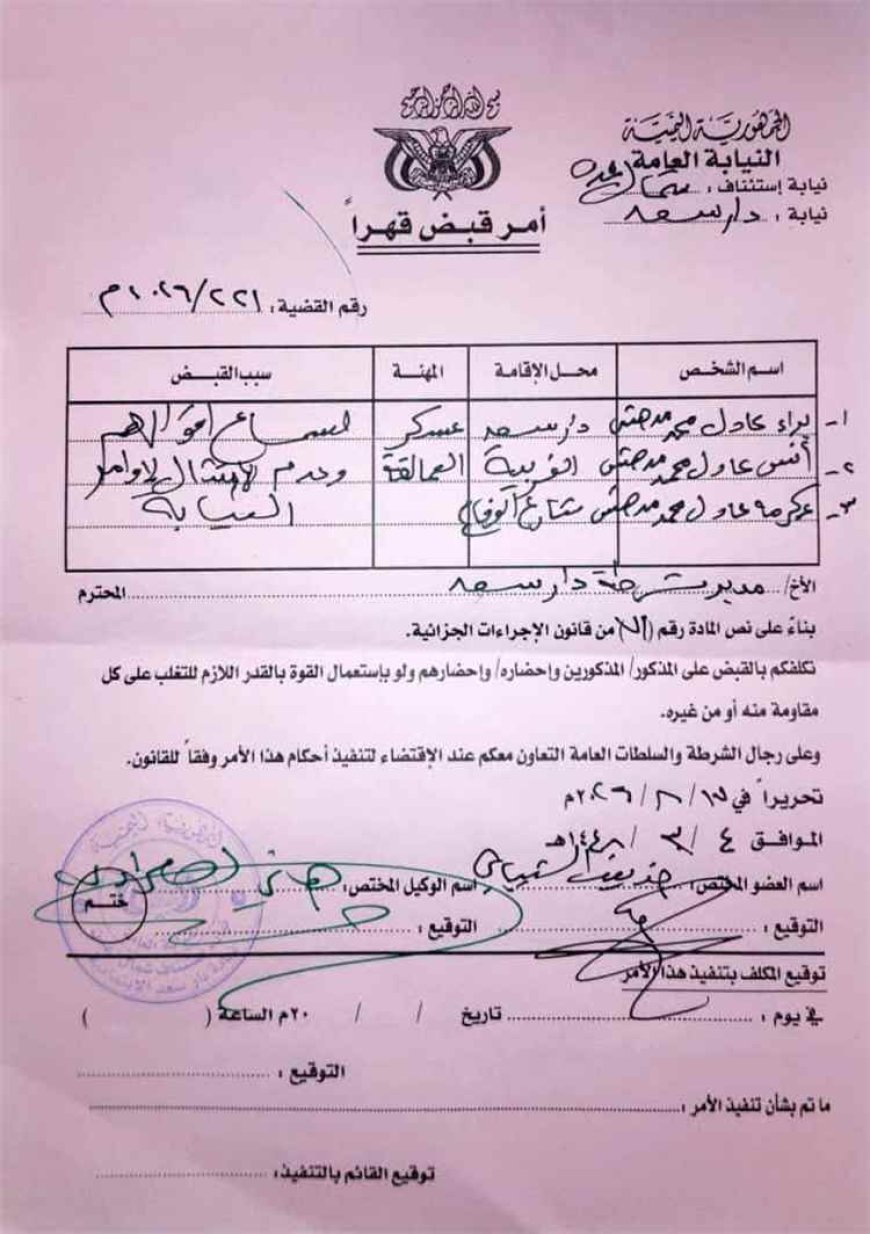 بسم الله الرحمن الرحيم
الجمهورية اليمنية
النيابة العامة
نيابة إستئناف : شمال عدن
نيابة : دار سعد
أمر قبض قهراً
رقم القضية : ٢٢١/٢٠٢٦م
اسم الشخص محل الإقامة المهنة سبب القبض
١- براء عادل محمد دار سعد عسكر لسماع أقوالهم
٢- أنس عادل محمد الغربية العمالقة وعدم الامتثال لأوامر
٣- عكرمه عادل محمد شارع النيابة
الأخ/ مدير شرطة دار سعد المحترم
بناءً على نص المادة رقم ( ) من قانون الإجراءات الجزائية.
نكلفكم بالقبض على المذكور/ المذكورين وإحضاره/ وإحضارهم ولو بإستعمال القوة بالقدر اللازم للتغلب على كل
مقاومة منه أو من غيره.
وعلى رجال الشرطة والسلطات العامة التعاون معكم عند الإقتضاء لتنفيذ أحكام هذا الأمر وفقاً للقانون.
تحريراً في / / ٢٠٢٦م
الموافق ٤ / ٣ / ١٤٤٨هـ
اسم العضو المختص : اسم الوكيل المختص : هاني
ختم
التوقيع : التوقيع :
توقيع المكلف بتنفيذ هذا الأمر
في يوم : تاريخ / / ٢٠م الساعة ( )
التوقيع :
ما تم بشأن تنفيذ الأمر :
توقيع القائم بالتنفيذ :